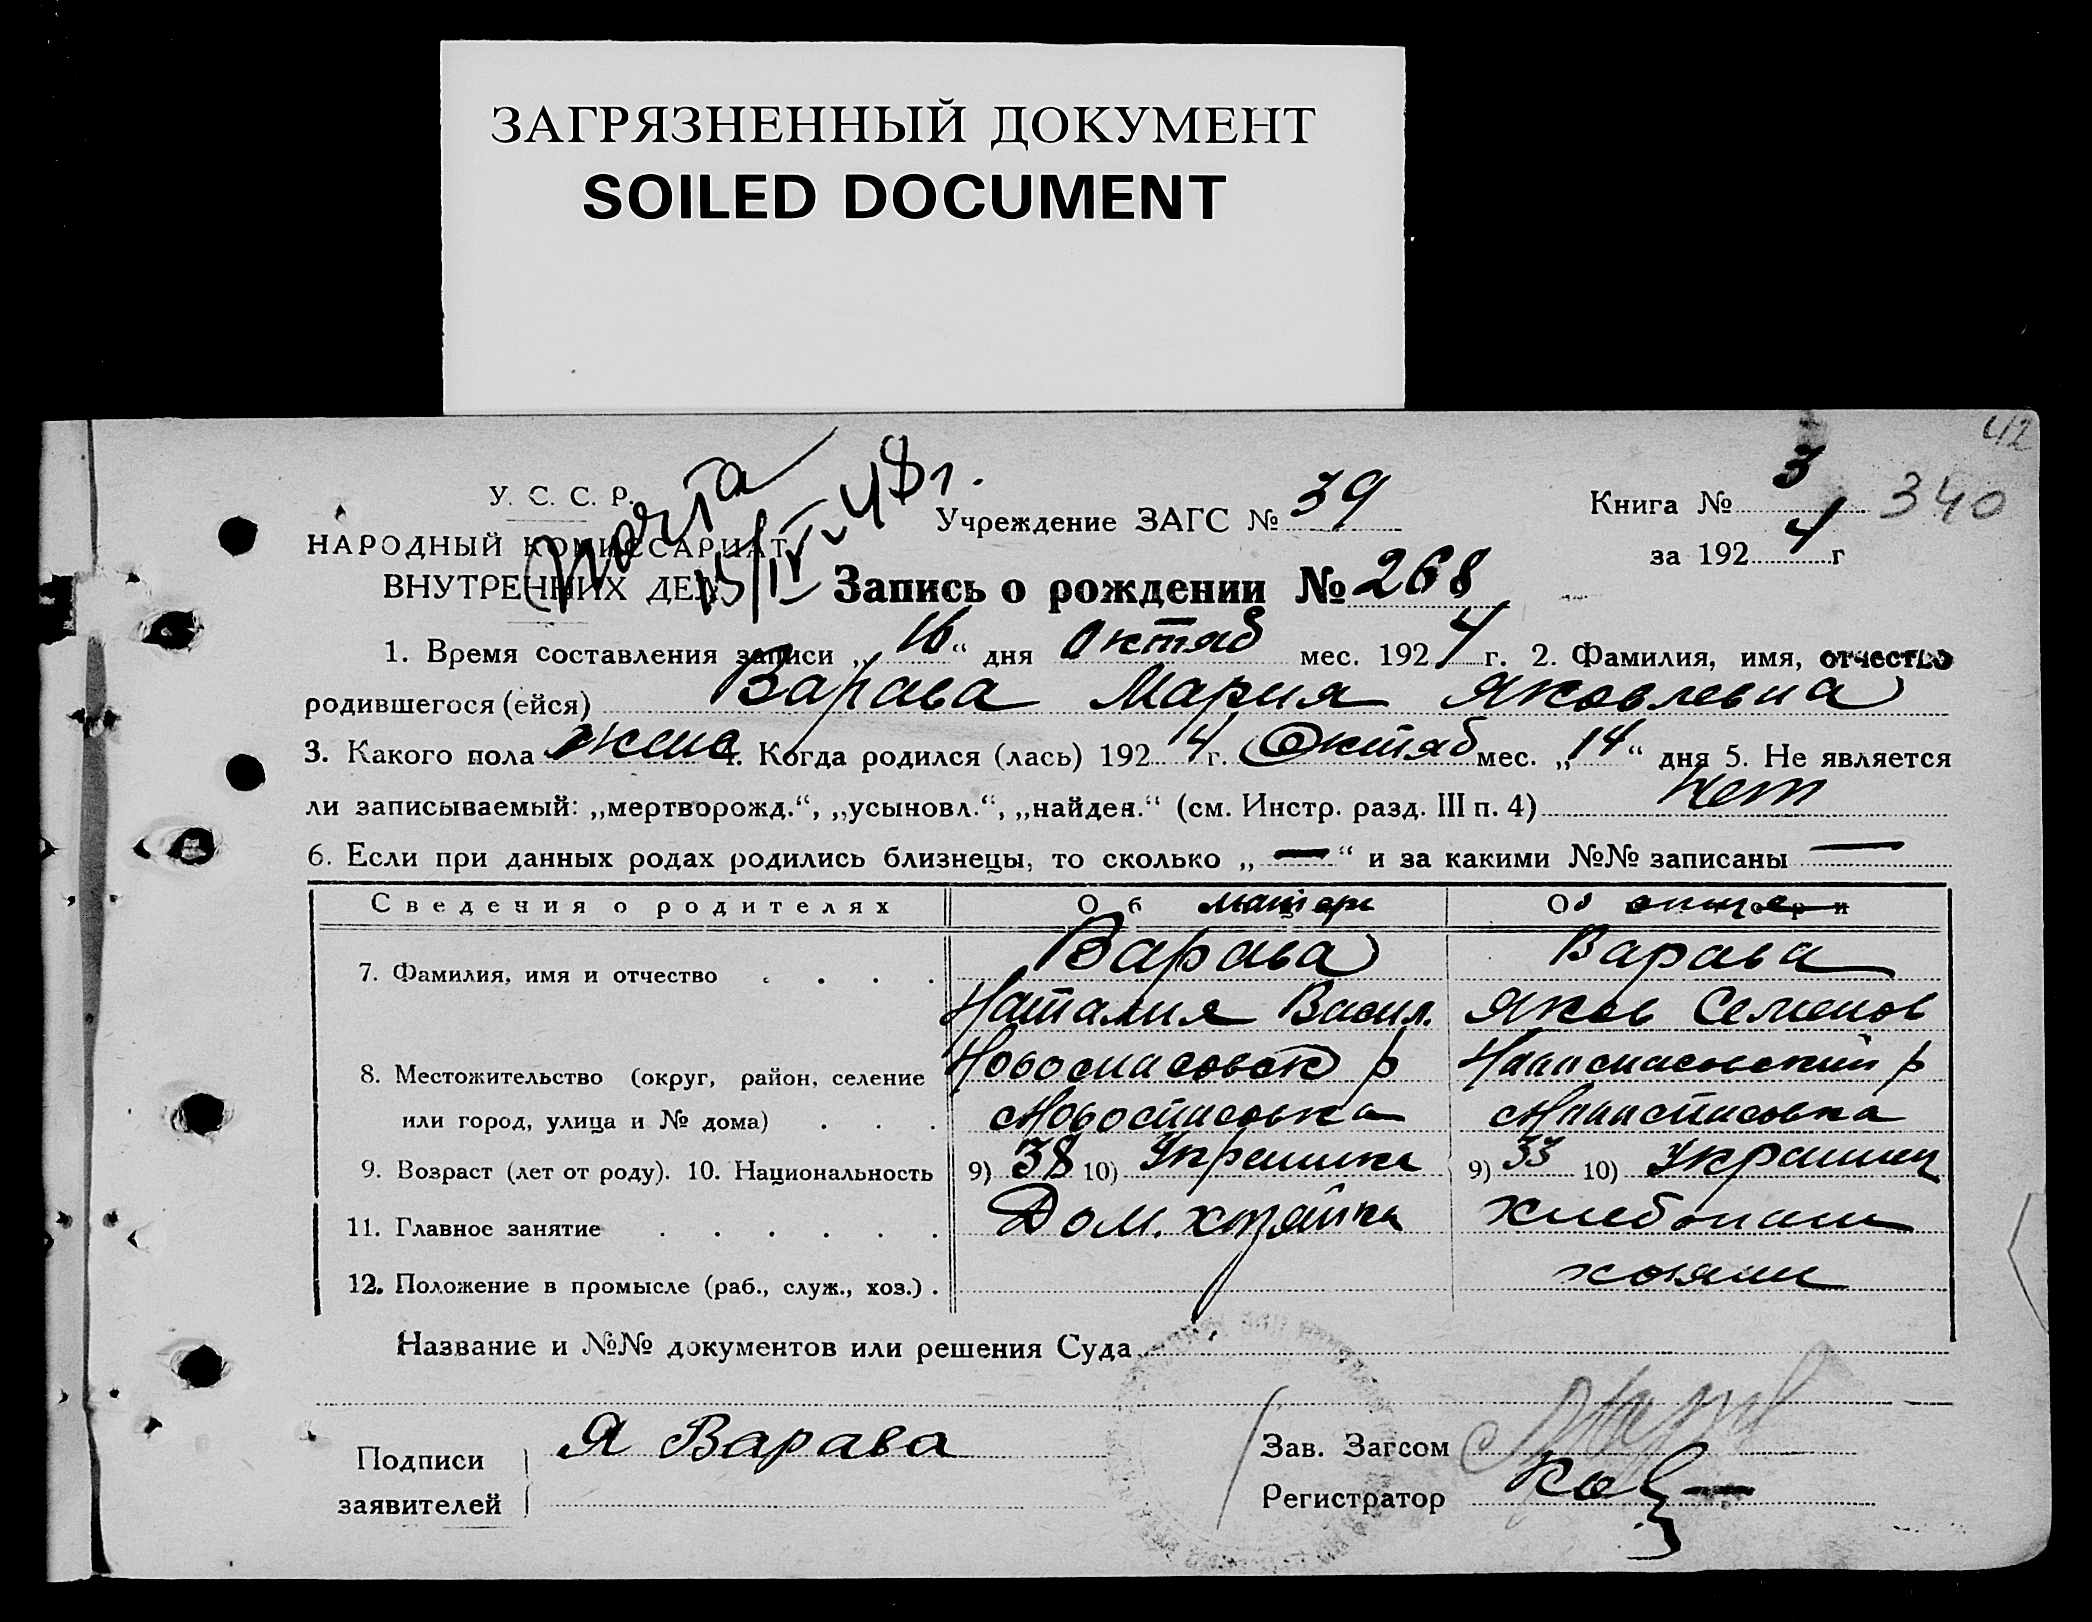 ЗАГРЯЗНЕННЫЙ ДОКУМЕНТ
SOILED DOCUMENT
42
У. С. С. Р.
НАРОДНЫЙ КОМИССАРИАТ
ВНУТРЕННИХ ДЕЛ
15/IV-48г.
Учреждение ЗАГС № 39
Книга № 3 340
за 1924 г
Запись о рождении № 268
1. Время составления записи „16“ дня Октяб мес. 1924 г. 2. Фамилия, имя, отчество
родившегося (ейся) Варава Мария Яковлевна
3. Какого пола жен 4. Когда родился (лась) 1924 г. Октяб мес. „14“ дня 5. Не является
ли записываемый: „мертворожд.“, „усыновл.“, „найден.“ (см. Инстр. разд. III п. 4) Нет
6. Если при данных родах родились близнецы, то сколько „—“ и за какими №№ записаны —
Сведения о родителях Об матери Об отце
7. Фамилия, имя и отчество Варава Варава
Наталия Васил. Яков Семенов
8. Местожительство (округ, район, селение Новоспасовск р Новоспасовский р
или город, улица и № дома) Новоспасовка Новоспасовка
9. Возраст (лет от роду). 10. Национальность 9) 38 10) Украинка 9) 33 10) Украинец
11. Главное занятие Дом. хозяйка Хлебопаш
12. Положение в промысле (раб., служ., хоз.) хозяин
Название и №№ документов или решения Суда
Подписи Я Варава Зав. Загсом
заявителей Регистратор